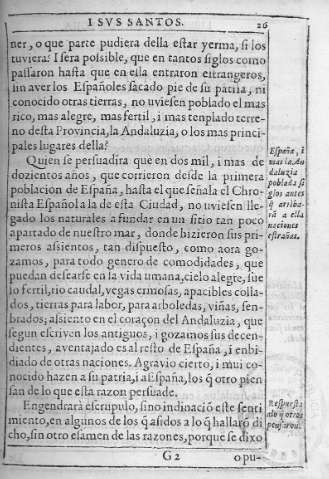 I SVS SANTOS.
26
ner, o que parte pudiera della estar yerma, si los
tuviera? I sera possible, que en tantos siglos como
passaron hasta que en ella entraron estrangeros,
sin aver los Españoles sacado pie de su patria, ni
conocido otras tierras, no uviesen poblado el mas
rico, mas alegre, mas fertil, i mas templado terre-
no desta Provincia, la Andaluzia, o los mas princi-
pales lugares della?
Quien se persuadira que en dos mil, i mas de
dozientos años, que corrieron desde la primera
poblacion de España, hasta el que señala el Chro-
nista Español a la de esta Ciudad, no uviesen lle-
gado los naturales a fundar en un sitio tan poco
apartado de nuestro mar, donde hizieron sus pri-
meros assientos, tan dispuesto, como aora go-
zamos, para todo genero de comodidades, que
puedan desearse en la vida umana, cielo alegre, sue
lo fertil, rio caudal, vegas ermosas, apacibles colla-
dos, tierras para labor, para arboledas, viñas, sen-
brados; assiento en el coraçon del Andaluzia, que
segun escriven los antiguos, i gozamos sus decen-
dientes, aventajado es al resto de España, i enbi-
diado de otras naciones. Agravio cierto, i mui co-
nocido hazen a su patria, i a España, los q̃ otro pien
san de lo que esta razon persuade.
Engendrarà escrupulo, sino indinaciõ este senti
miento, en algunos de los q̃ asidos a lo q̃ hallarõ di
cho, sin otro esamen de las razones, porque se dixo
G 2
opu-
España, i
mas la An
daluzia
poblada si
glos antes
q̃ arriba-
rã a ella
naciones
estrañas.
Respuesta
a lo q̃ otros
pensaron.